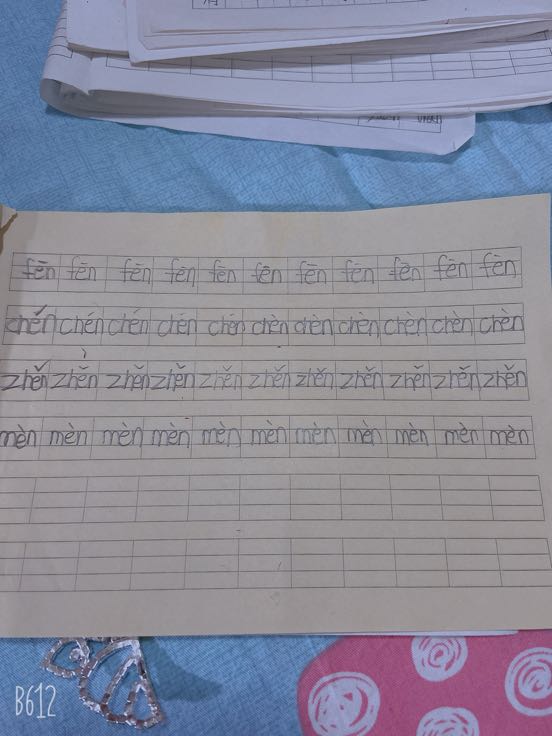 fēn fēn fēn fēn fēn fēn fēn fēn fēn fēn fèn
chén chén chén chén chén chèn chèn chèn chèn chèn chèn
zhěn zhěn zhěn zhěn zhěn zhěn zhěn zhěn zhěn zhěn zhěn
mèn mèn mèn mèn mèn mèn mèn mèn mèn mèn mèn
B612